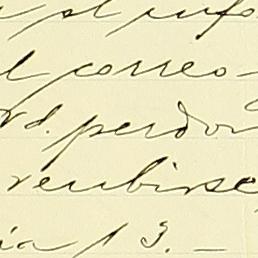 el info
el correo
Vd. perdon
recibirse
ía 13. -